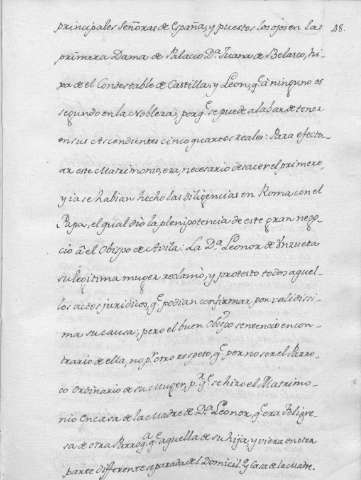 principales Señoras de España, y puestos los ojos en la
primera Dama de Palacio D.ª Juana de Belasco, hi-
ja del Condestable de Castilla, y Leon, q.e à ninguno es
segundo en la Nobleza, porq.e se puede alabar de tener
en sus Ascendientes cinco quartos reales: Para efectu-
ar este Matrimonio, era necesario desacer el primero,
y ia se habian hecho las diligencias en Roma con el
Papa, el qual dio la plenipotencia de este gran nego-
cio a el Obispo de Avila. La D.ª Leonor de Vnzueta
su legitima muger reclamó, y protesto todos aquel-
los actos juridicos, q.e podian confirmar por validissi-
ma su causa; pero el buen Obispo sentencio en con-
trario de ella, no p.r otro respeto, q.e por no ser el Parro-
co Ordinario de su Muger, p.r q.e se hizo el Matrimo-
nio en casa de la Madre de D.ª Leonor, q.e era Feligre-
sa de otra Parroq.a q.e aquella de su hija, y viviera en otra
parte diferente, apartada del Domicil.o y Casa de la Madre.
38.